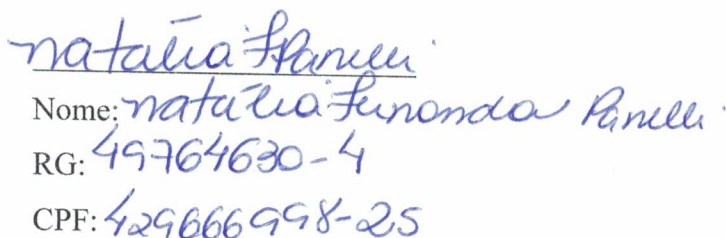 natália FPanelli
Nome: natália Fernanda Panelli
RG: 49764630-4
CPF: 429666998-25